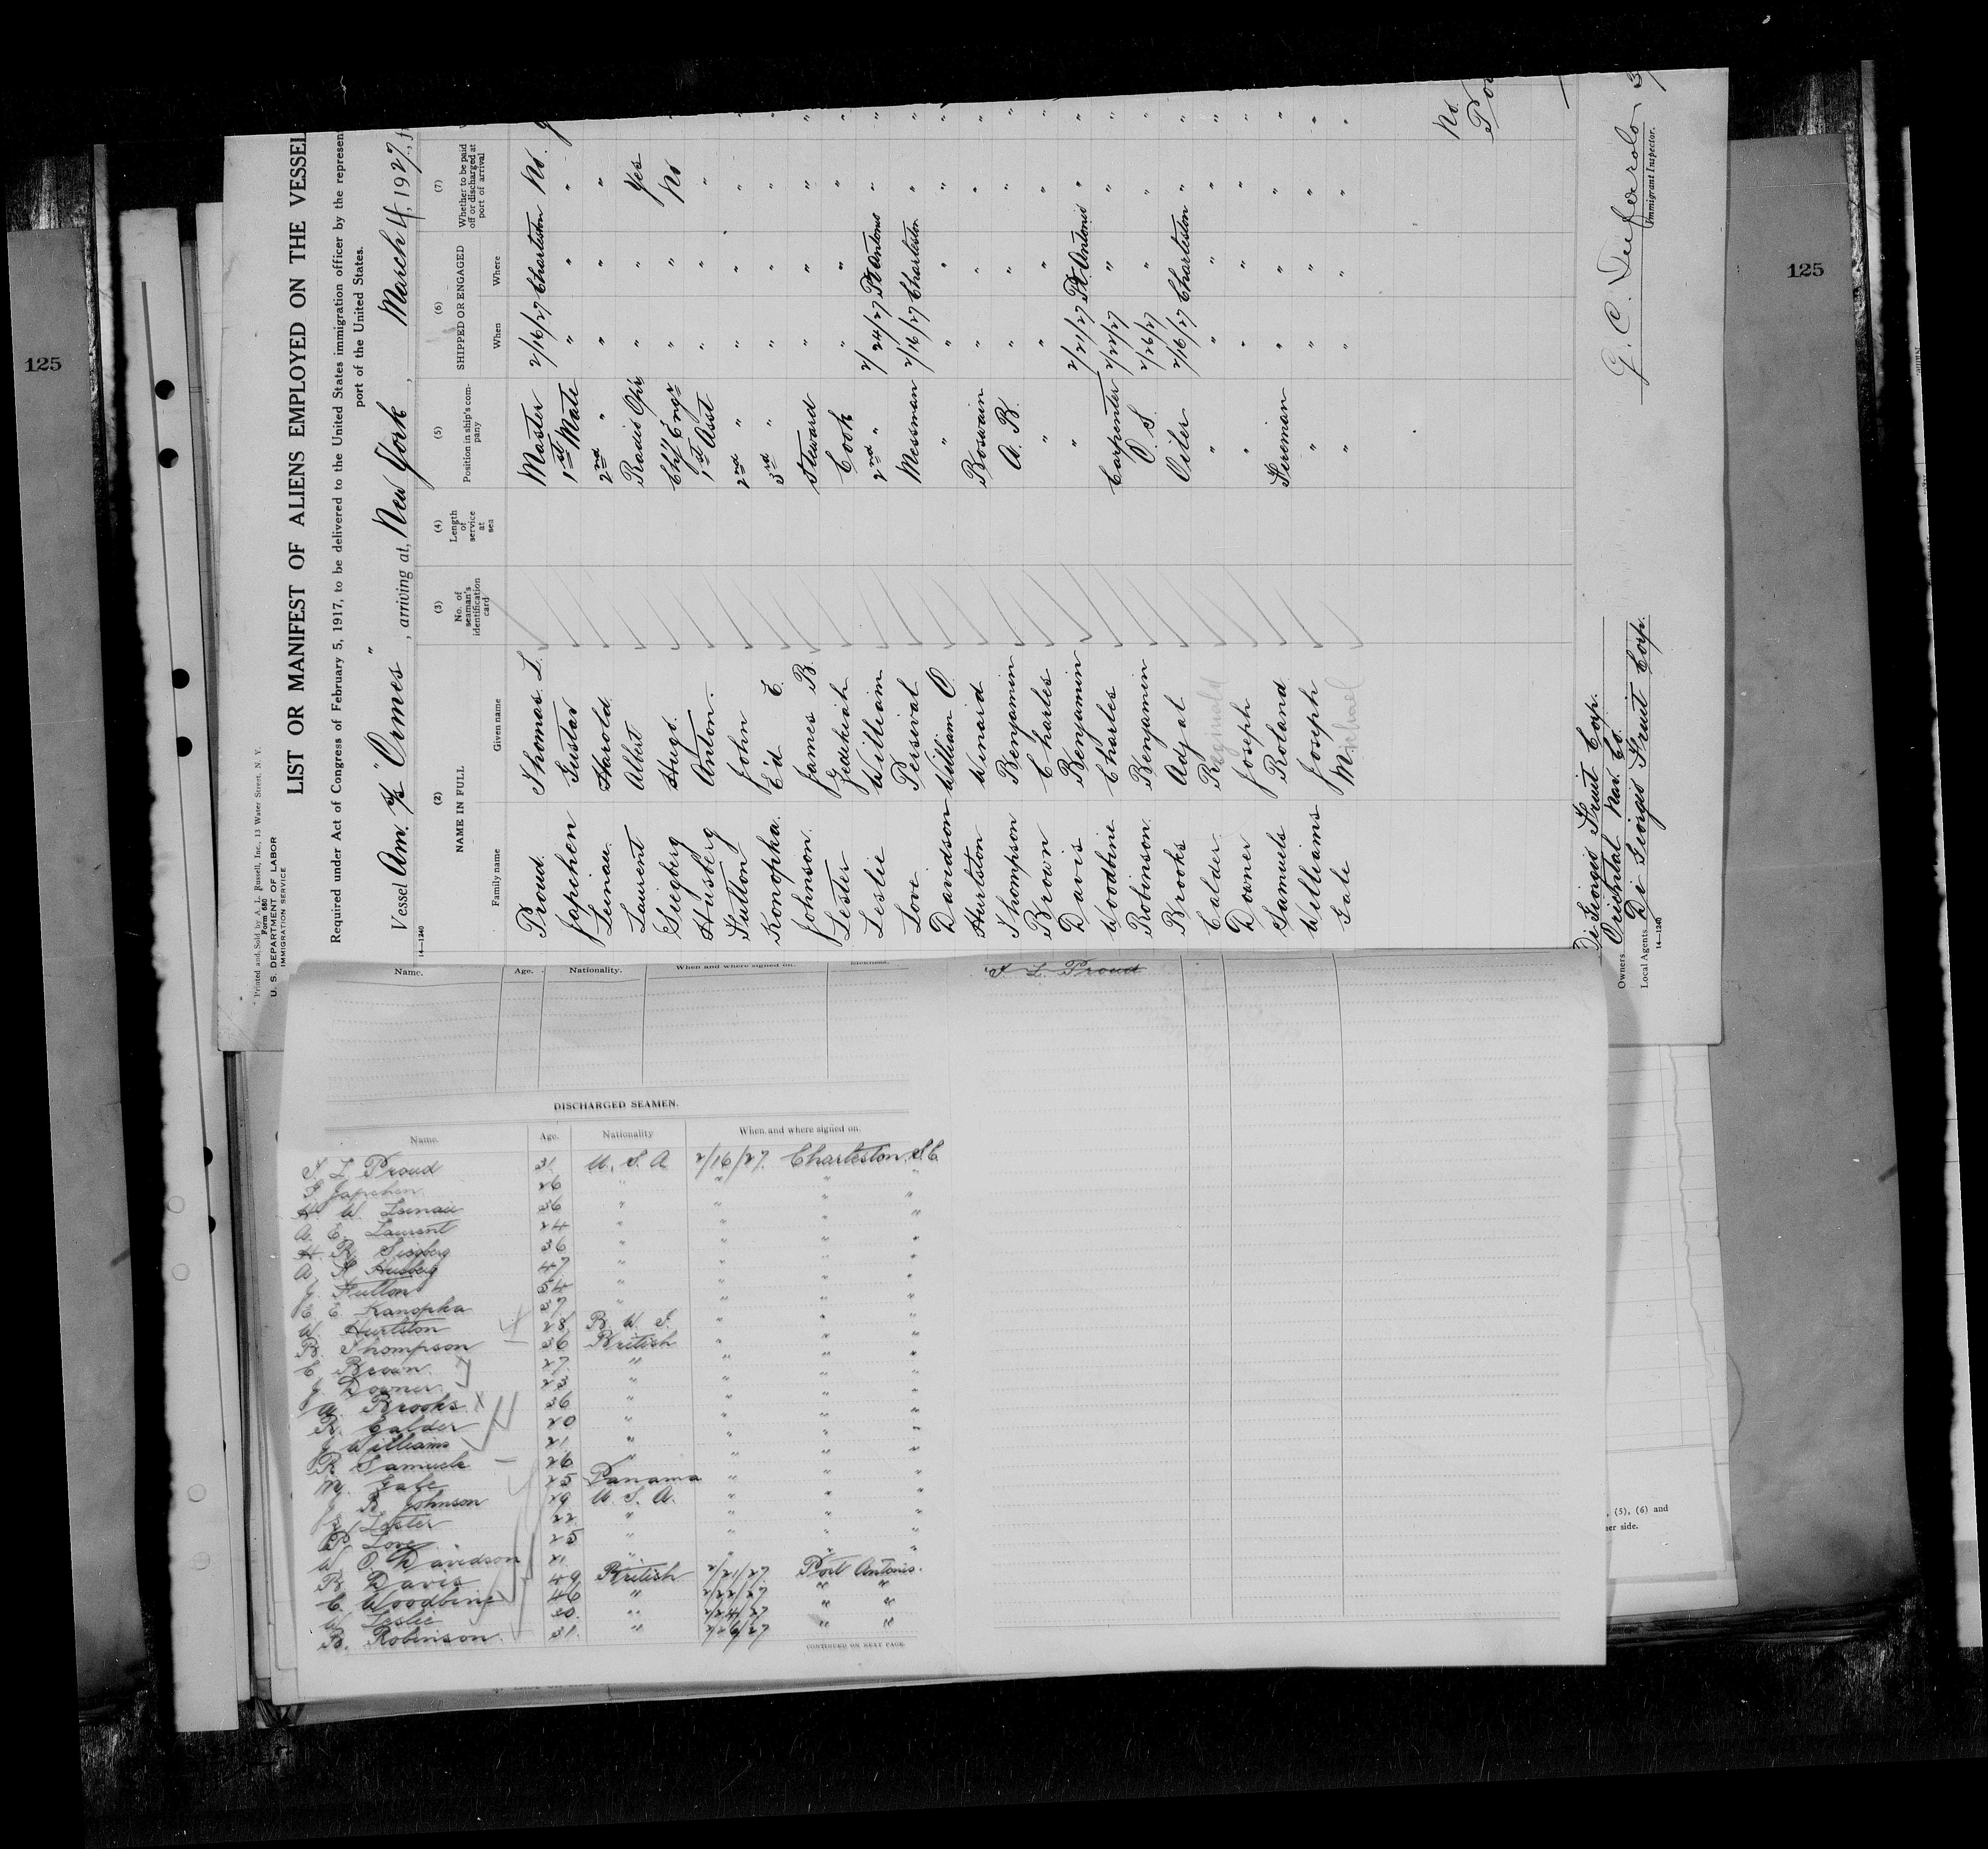 125
125
* Printed and Sold by A. L. Russell, Inc., 13 Water Street, N. Y.
Form 680
U. S. DEPARTMENT OF LABOR
IMMIGRATION SERVICE
LIST OR MANIFEST OF ALIENS EMPLOYED ON THE VESSEL
Required under Act of Congress of February 5, 1917, to be delivered to the United States immigration officer by the represen
port of the United States.
Vessel Am. S/S "Ormes", arriving at, New York, March 4, 1927,
14—1240
(2) (3) (4) (5) (6) (7)
NAME IN FULL No. of seaman's identification card Length of service at sea Position in ship's company SHIPPED OR ENGAGED Whether to be paid off or discharged at port of arrival
Family name Given name When Where
Proud Thomas L. Master 2/16/27 Charleston No.
Japchen Gustav 1st Mate " " "
Leinau Harold 2nd " " " "
Laurent Albert Radio Opr " " Yes
Siegberg Hugo. Chf Engr " " No
Husberg Anton. 1st Asst " " "
Fulton John 2nd " " " "
Konopka. Ed E. 3rd " " " "
Johnson. James B. Steward " " "
Lester Zedekiah Cook " " "
Leslie William 2nd " 2/24/27 Pt Antonio "
Love Persival Messman 2/16/27 Charleston "
Davidson William O. " " " "
Hurlston Winard Boswain " " "
Thompson Benjamin A. B. " " "
Brown Charles " " " "
Davis Benjamin " 2/21/27 Pt. Antonio "
Woodbine Charles Carpenter 2/22/27 " "
Robinson Benjamin O. S. 2/26/27 " "
Brooks Adjat Oiler 2/16/27 Charleston "
Calder Reginald " " " "
Downer Joseph " " " "
Samuels Roland Fireman " " "
Williams Joseph " " " "
Gale Michael " " " "
No.
Di Giorgio Fruit Corp.
Owners Oriental Nav. Co.
Local Agents Di Giorgio Fruit Corp.
14—1240
Immigrant Inspector.
Name. Age. Nationality. When and where signed on.
T. L. Proud
DISCHARGED SEAMEN.
Name. Age. Nationality When and where signed on.
T L Proud 31 U. S. A 2/16/27. Charleston S.C.
G. Japchen 26 " " " "
H. W. Leinau 36 " " " "
A. E. Laurent 24 " " " "
H. R. Siegberg 36 " " " "
A. Husberg 47 " " " "
J. Fulton 54 " " " "
E. E. Kanopka 37 " " " "
W. Hurlston 28 B. W. I. " " "
B. Thompson 36 British " " "
C. Brown 27 " " " "
J. Downer 23 " " " "
A. Brooks 36 " " " "
R. Calder 20 " " " "
J. Williams 21 " " " "
R. Samuels 26 " " " "
M. Gale 25 Panama " " "
J. B. Johnson 29 U. S. A. " " "
Z. Lester 22 " " " "
P. Love 25 " " " "
W. O. Davidson 21 " " " "
B. Davis 49 British 2/21/27 Port Antonio.
C. Woodbine 46 " 2/22/27 " "
W. Leslie 30. " 2/24/27 " "
B. Robinson 31. " 2/26/27 " "
CONTINUED ON NEXT PAGE.
, (5), (6) and
er side.